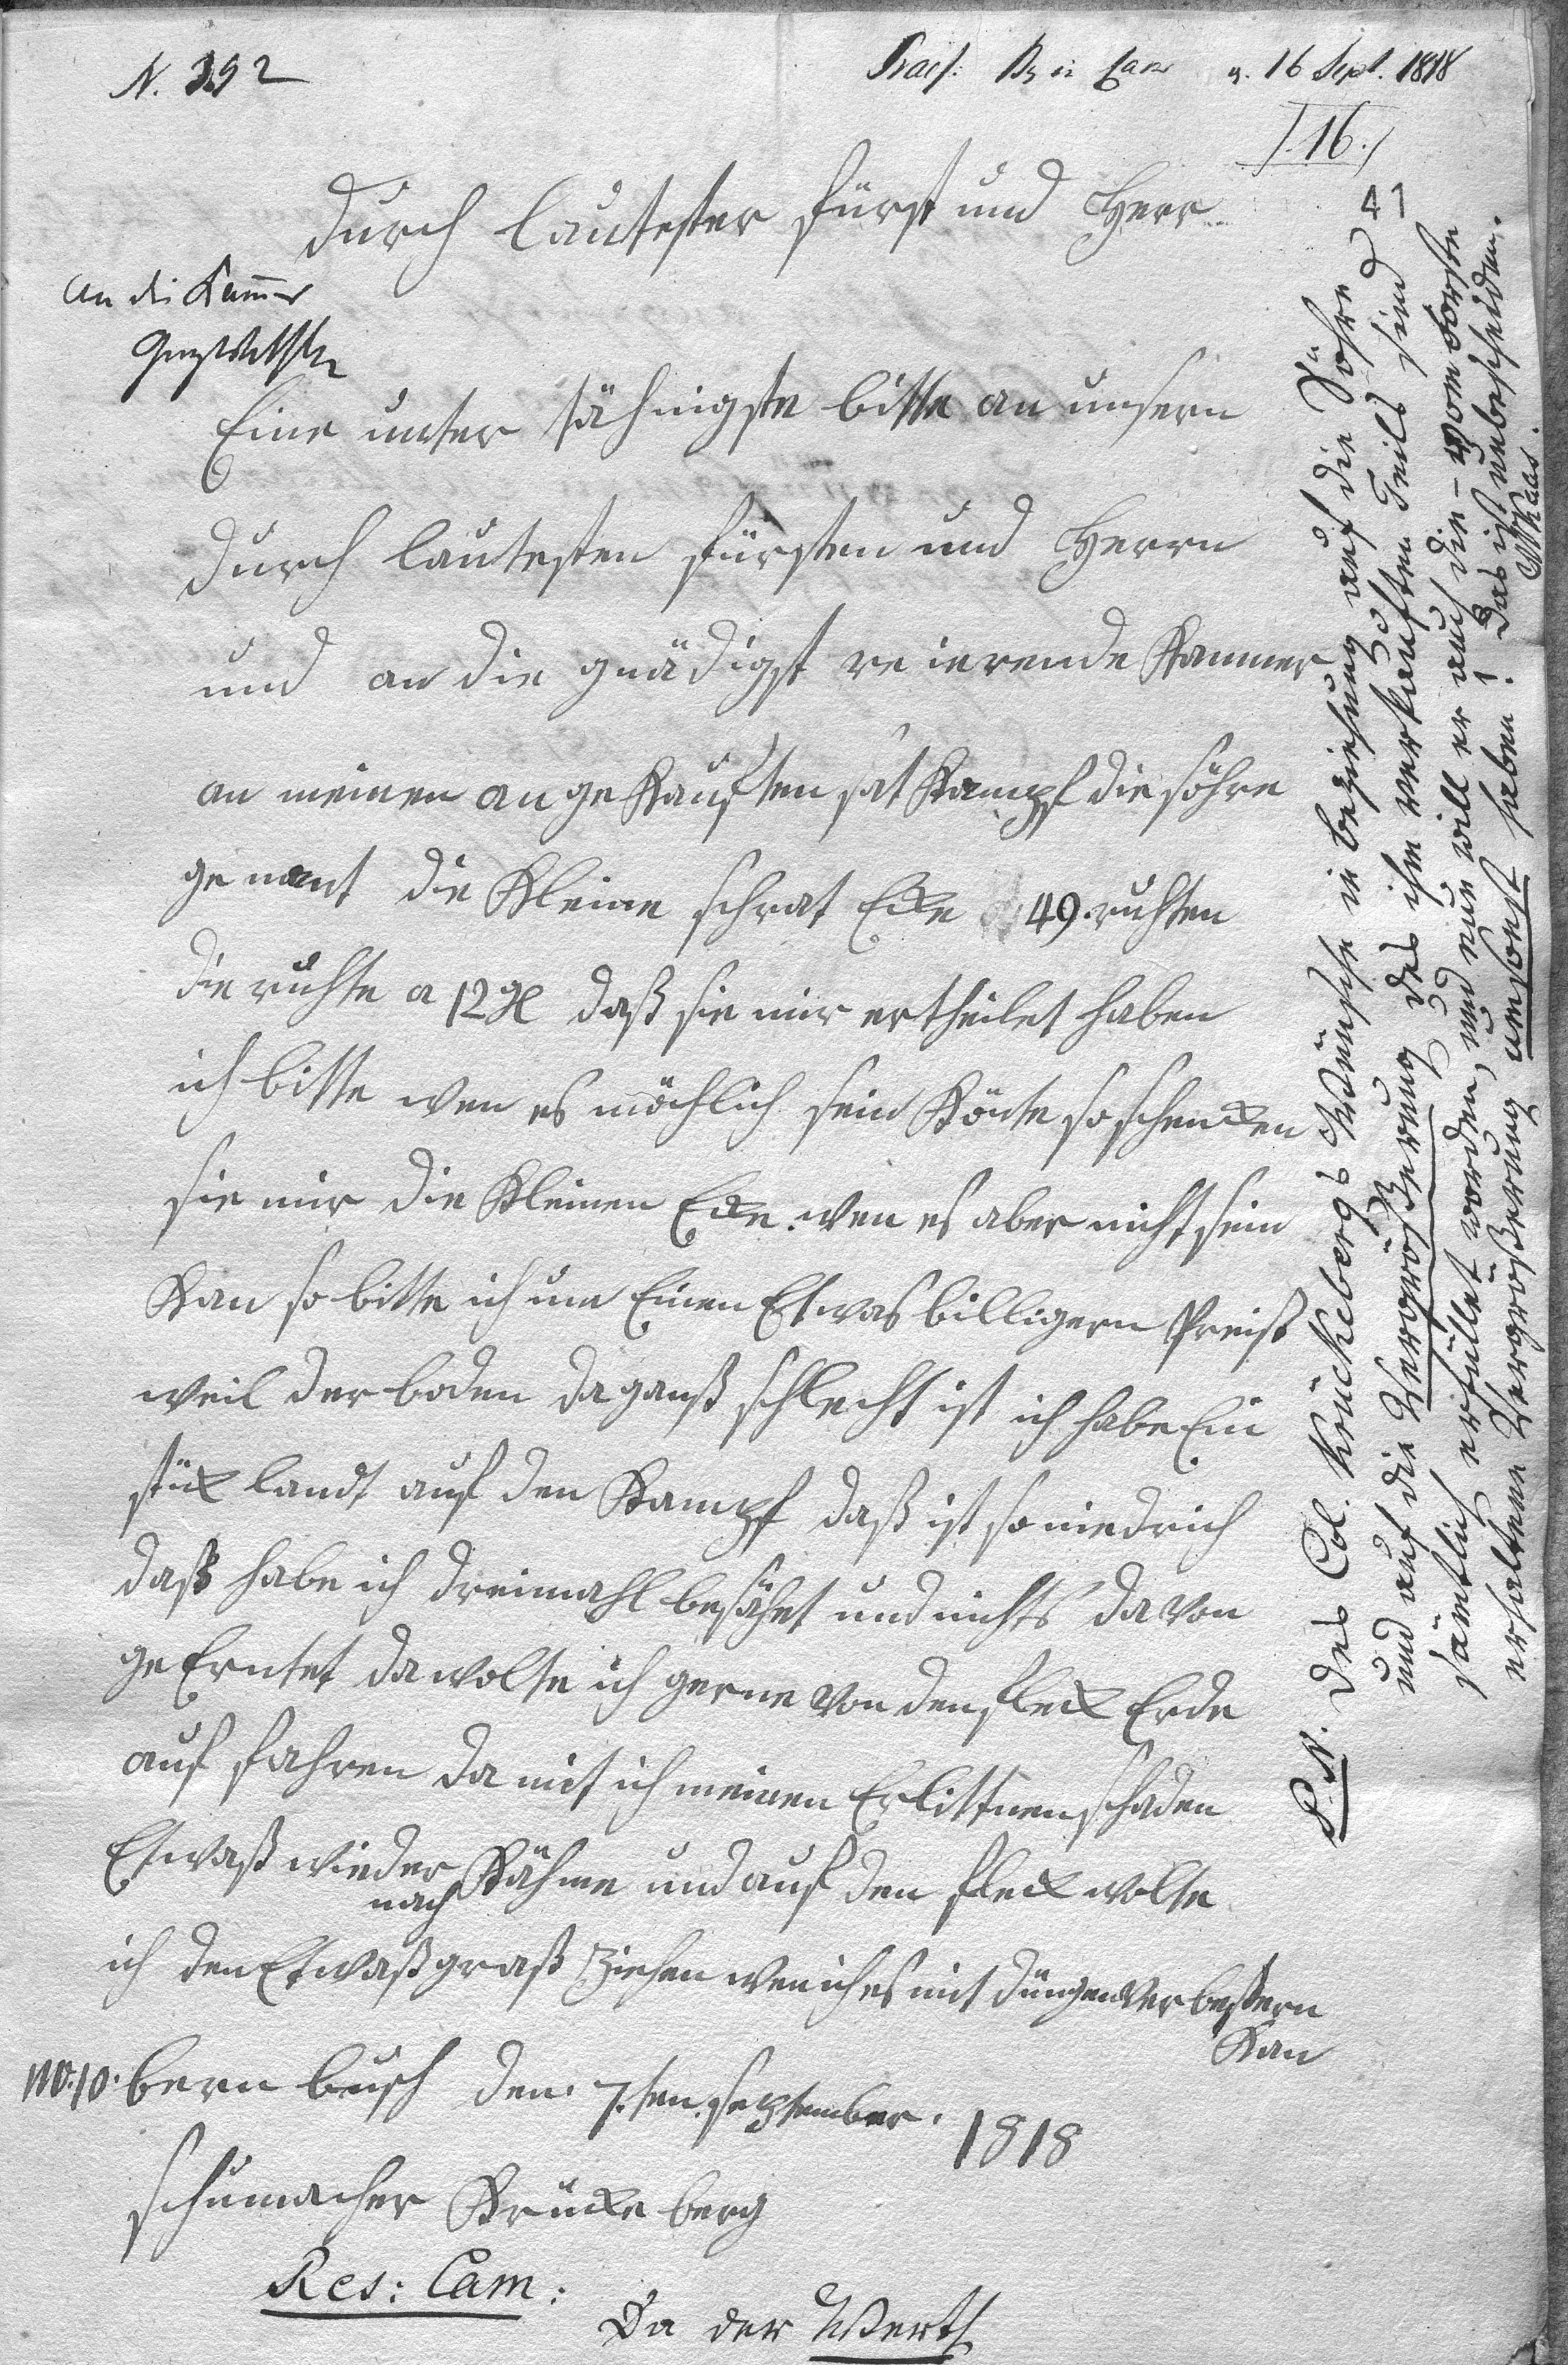 N. 392
Praes: in Cam d. 16 Sept. 1818
/.16./
41
durch lautester fürst und Herr
an die Kammer
Eine unter tähnigste bitte an unsern
durch lautesten fürsten und Herrn
und an die gnädigst re ierende Kammer
an meinen an ge Kauften sat Kampf die söhre
ge nant die Kleine schrat Ecke 49. ruhten
die ruhte a 12 gl daß sie mir ertheilet haben
ich bitte wen es möchlich sein Könte so schencken
sie mir die Kleinen Ecke. wen es aber nicht sein
Kan so bitte ich um Einen Etwas billigern Preiß
weil der boden da ganß schlecht ist ich habe Ein
stück landt auf den Kampf daß ist so niedrich
daß habe ich dreimahl besähet und nichts da von
ge Erntet da wolte ich gerne von den fleck Erde
auf fahren da mit ich meinen Erlittnen schaden
Etwaß wieder nach Kähme und auf den fleck wolte
ich den Etwaß graß ziehen wen ich es mit düngen verbeßern
Kan
No. 10. bern busch den 7.ten. september. 1818
schumacher Krücke berg
Res: Cam:
Da der Werth
P.N. Des Col. Krückebergs Wünsche in beziehung auf die Söhre
und auf die Vergrößerung des ihm verkauften Teils sind
sämtlich erfüllet worden, und nun will er auch die vom Forste
erhaltene Vergroßerung umsonst haben! Das ist unbescheiden.